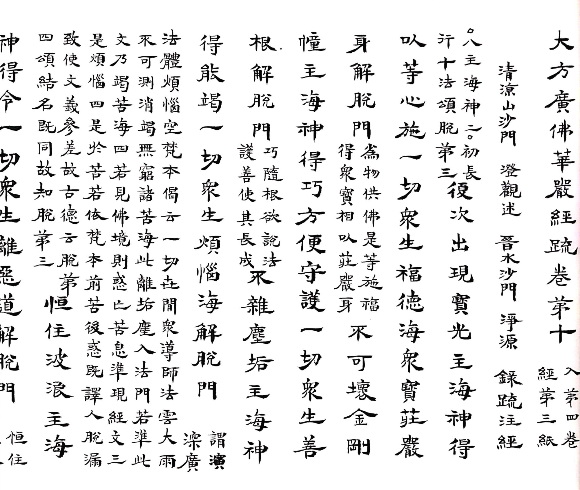 大方廣佛華嚴經䟽卷第十
入第四卷
經第三紙
清涼山沙門 澄觀述 晉水沙門 淨源 錄䟽注經
。八主海神二。初長
行十法頌脫第三
復次出現寶光主海神得
以等心施一切衆生福德海衆寶莊嚴
身解脫門
爲物供佛是等施福
得衆寶相以莊嚴身
不可壞金剛
幢主海神得巧方便守護一切衆生善
根解脫門
巧隨根欲說法
護善使其長成
不雜塵垢主海神
得能竭一切衆生煩惱海解脫門
謂演
深廣
法體煩惱空梵本偈云一切世間衆導師法雲大雨
不可測消竭無窮諸苦海此離垢塵入法門若準此
文乃竭苦海四若見佛境則惑亡苦息準現經文三
是煩惱四是於苦若依梵本前苦後惑既譯人脫漏
致使文義參差故古德云脫第
四頌結名既同故知脫第三
恒住波浪主海
神得令一切衆生離惡道解脫門
恒住